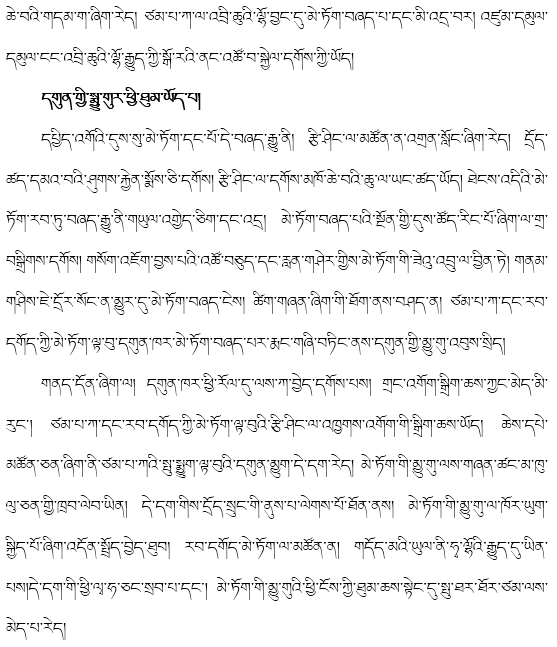 ཆེ་བའི་གདམ་ག་ཞིག་རེད། ཙམ་པ་ཀ་ལ་འབྲི་ཆུའི་ལྷོ་བྱང་དུ་མེ་ཏོག་བཞད་པ་དང་མི་འདྲ་བར། འཛུམ་དམུལ་
དམུལ་ངང་འབྲི་ཆུའི་ལྷོ་རྒྱུད་ཀྱི་སྒོ་རའི་ནང་འཚོ་བ་སྐྱེལ་དགོས་ཀྱི་ཡོད།
དགུན་གྱི་མྱུ་གུར་ཕྱི་ཐུམ་ཡོད་པ།
དཔྱིད་འགོའི་དུས་སུ་མེ་ཏོག་དང་པོ་དེ་བཞད་རྒྱུ་ནི། རྩི་ཤིང་ལ་མཚོན་ན་འགྲན་སློང་ཞིག་རེད། དྲོད་
ཚད་དམའ་བའི་ཤུགས་རྐྱེན་སྨོས་ཅི་དགོས། རྩི་ཤིང་ལ་དགོས་མཁོ་ཆེ་བའི་ཆུ་ལ་ཡང་ཚད་ཡོད། ཐེངས་འདིའི་མེ་
ཏོག་རབ་ཏུ་བཞད་རྒྱུ་ནི་གཡུལ་འགྱེད་ཅིག་དང་འདྲ། མེ་ཏོག་བཞད་པའི་སྔོན་གྱི་དུས་ཚོད་རིང་པོ་ཞིག་ལ་གྲ་
བསྒྲིགས་དགོས། གསོག་འཇོག་བྱས་པའི་འཚོ་བཅུད་དང་རླན་གཤེར་གྱིས་མེ་ཏོག་གི་ཟེའུ་འབྲུ་ལ་བྱིན་ཏེ། གནམ་
གཤིས་ཇེ་དྲོར་སོང་ན་མྱུར་དུ་མེ་ཏོག་བཞད་ངེས། ཚིག་གཞན་ཞིག་གི་ཐོག་ནས་བཤད་ན། ཙམ་པ་ཀ་དང་རབ་
དགོད་ཀྱི་མེ་ཏོག་ལྟ་བུ་དགུན་ཁར་མེ་ཏོག་བཞད་པར་རྨང་གཞི་བཏིང་ནས་དགུན་གྱི་མྱུ་གུ་འབུས་སྲིད།
གནད་དོན་ཞིག་ལ། དགུན་ཁར་ཕྱི་རོལ་དུ་ལས་ཀ་བྱེད་དགོས་པས། གྲང་འགོག་སྒྲིག་ཆས་ཀྱང་མེད་མི་
རུང་། ཙམ་པ་ཀ་དང་རབ་དགོད་ཀྱི་མེ་ཏོག་ལྟ་བུའི་རྩི་ཤིང་ལ་འཁྱགས་འགོག་གི་སྒྲིག་ཆས་ཡོད། ཆེས་དཔེ་
མཚོན་ཅན་ཞིག་ནི་ཙམ་པ་ཀའི་སྤུ་སྨྱུག་ལྟ་བུའི་དགུན་མྱུག་དེ་དག་རེད། མེ་ཏོག་གི་མྱུ་གུ་ལས་གཞན་ཚང་མ་ཁུ་
ལུ་ཅན་གྱི་ཁྲབ་ལེབ་ཡིན། དེ་དག་གིས་དྲོད་སྲུང་གི་ནུས་པ་ལེགས་པོ་ཐོན་ནས། མེ་ཏོག་གི་མྱུ་གུ་ལ་ཁོར་ཡུག་
སྐྱིད་པོ་ཞིག་འདོན་སྤྲོད་བྱེད་ཐུབ། རབ་དགོད་མེ་ཏོག་ལ་མཚོན་ན། གདོད་མའི་ཡུལ་ནི་ཧྭ་ལྷོའི་རྒྱུད་དུ་ཡིན་
པས།དེ་དག་གི་ཕྱི་ལྭ་ཧ་ཅང་སྲབ་པ་དང་། མེ་ཏོག་གི་མྱུ་གུའི་ཕྱི་ངོས་ཀྱི་ཐུམ་ཆས་སྟེང་དུ་སྤུ་ཐར་ཐོར་ཙམ་ལས་
མེད་པ་རེད།